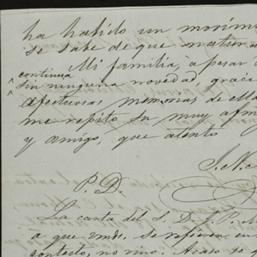 ha habido un movimie
se sabe de que mater
Mi familia, a pesar
continua
sin ninguna novedad, graci
afectuosas memorias de ella
me repito su muy afm
y amigo, que atento
P. D.
La carta del S. D.
a que Vmd. se refiere en
contesto, no vino. Acaso